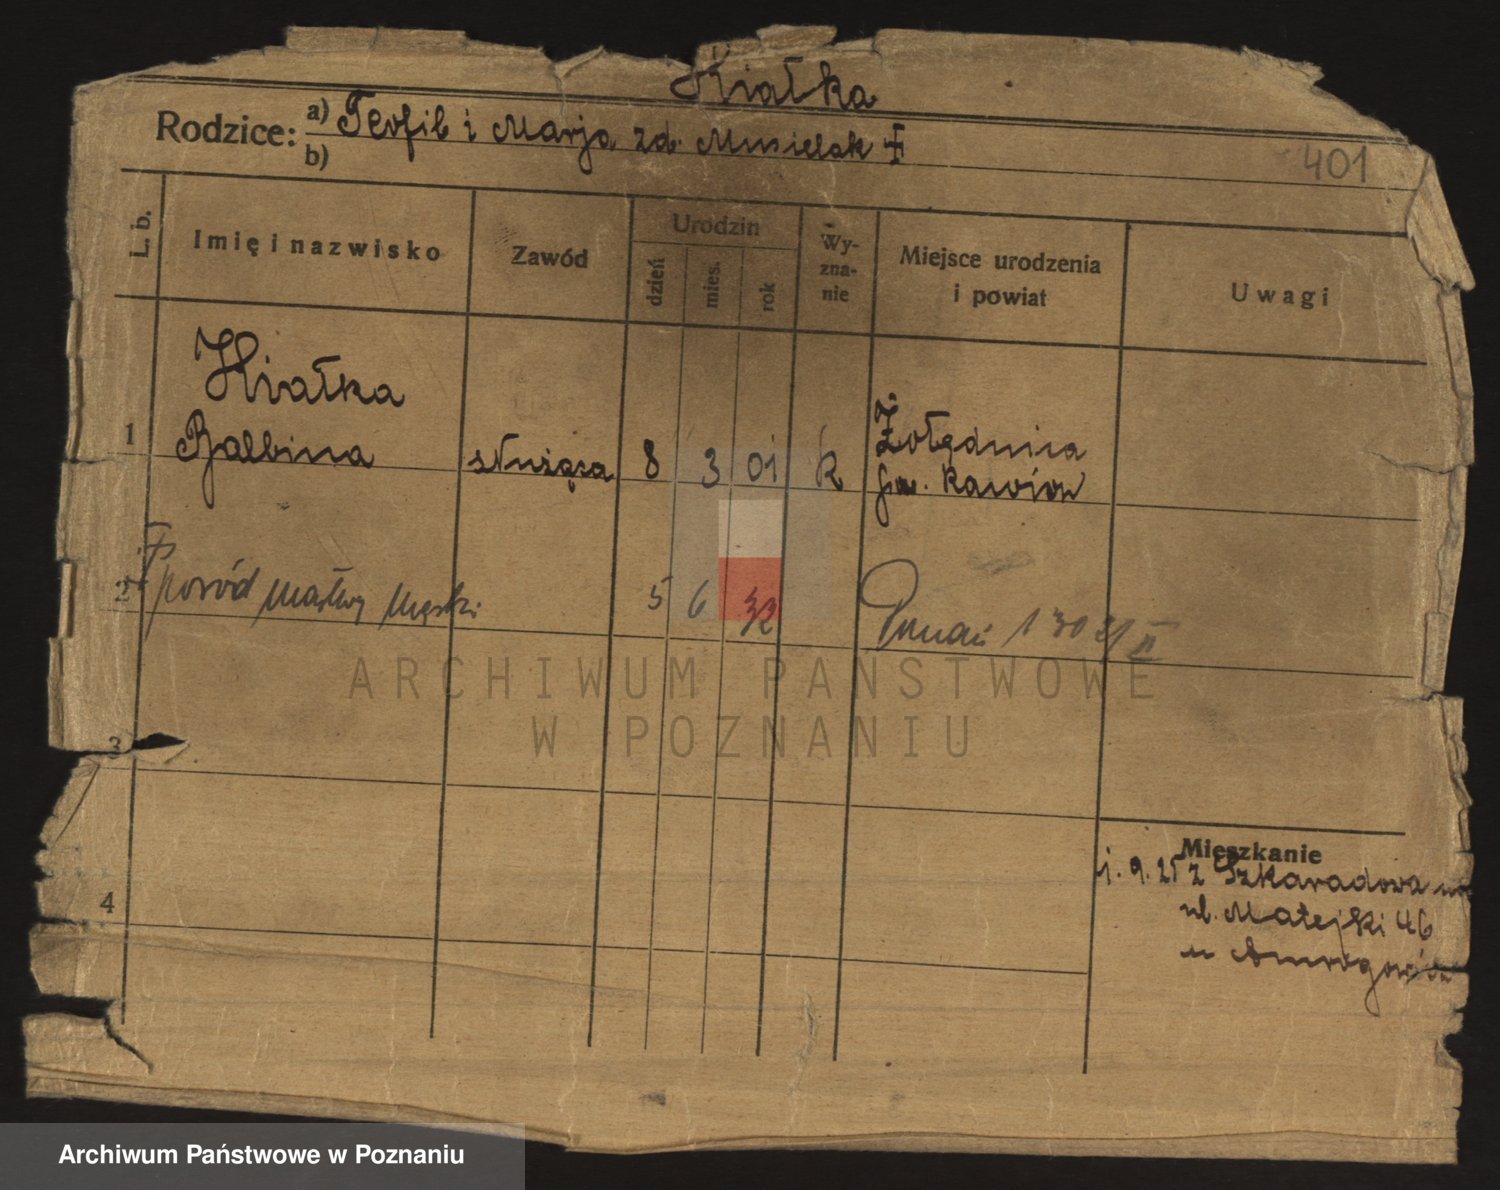 Kiałka
Rodzice: a) Teofil i Marja zd. Musielak ‡
b)
401
L. b.
Imię i nazwisko
Zawód
Urodzin
dzień
mies.
rok
Wy-
zna-
nie
Miejsce urodzenia
i powiat
Uwagi
Kiałka
1 Balbina służąca 8 3 01 k Żołędnica
pow. Rawicz
2 poród martwy męski 5 6 32 Poznań 1303/II
3
4
Mieszkanie
1. 9. 25 z Szkaradowa
ul. Matejki 46
u
ARCHIWUM PAŃSTWOWE
W POZNANIU
Archiwum Państwowe w Poznaniu